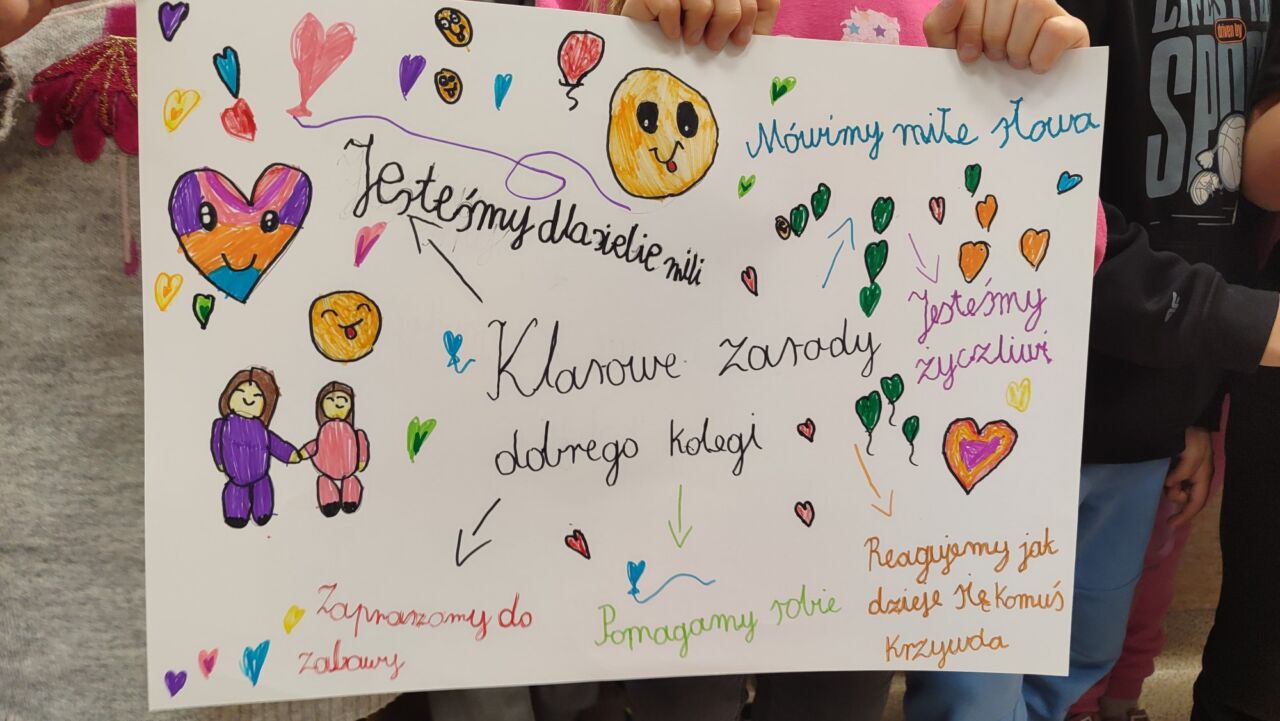 Jesteśmy dla siebie mili
Mówimy miłe słowa
Jesteśmy
życzliwi
Klasowe zasady
dobrego kolegi
Zapraszamy do
zabawy
Pomagamy sobie
Reagujemy jak
dzieje się komuś
krzywda
driven by